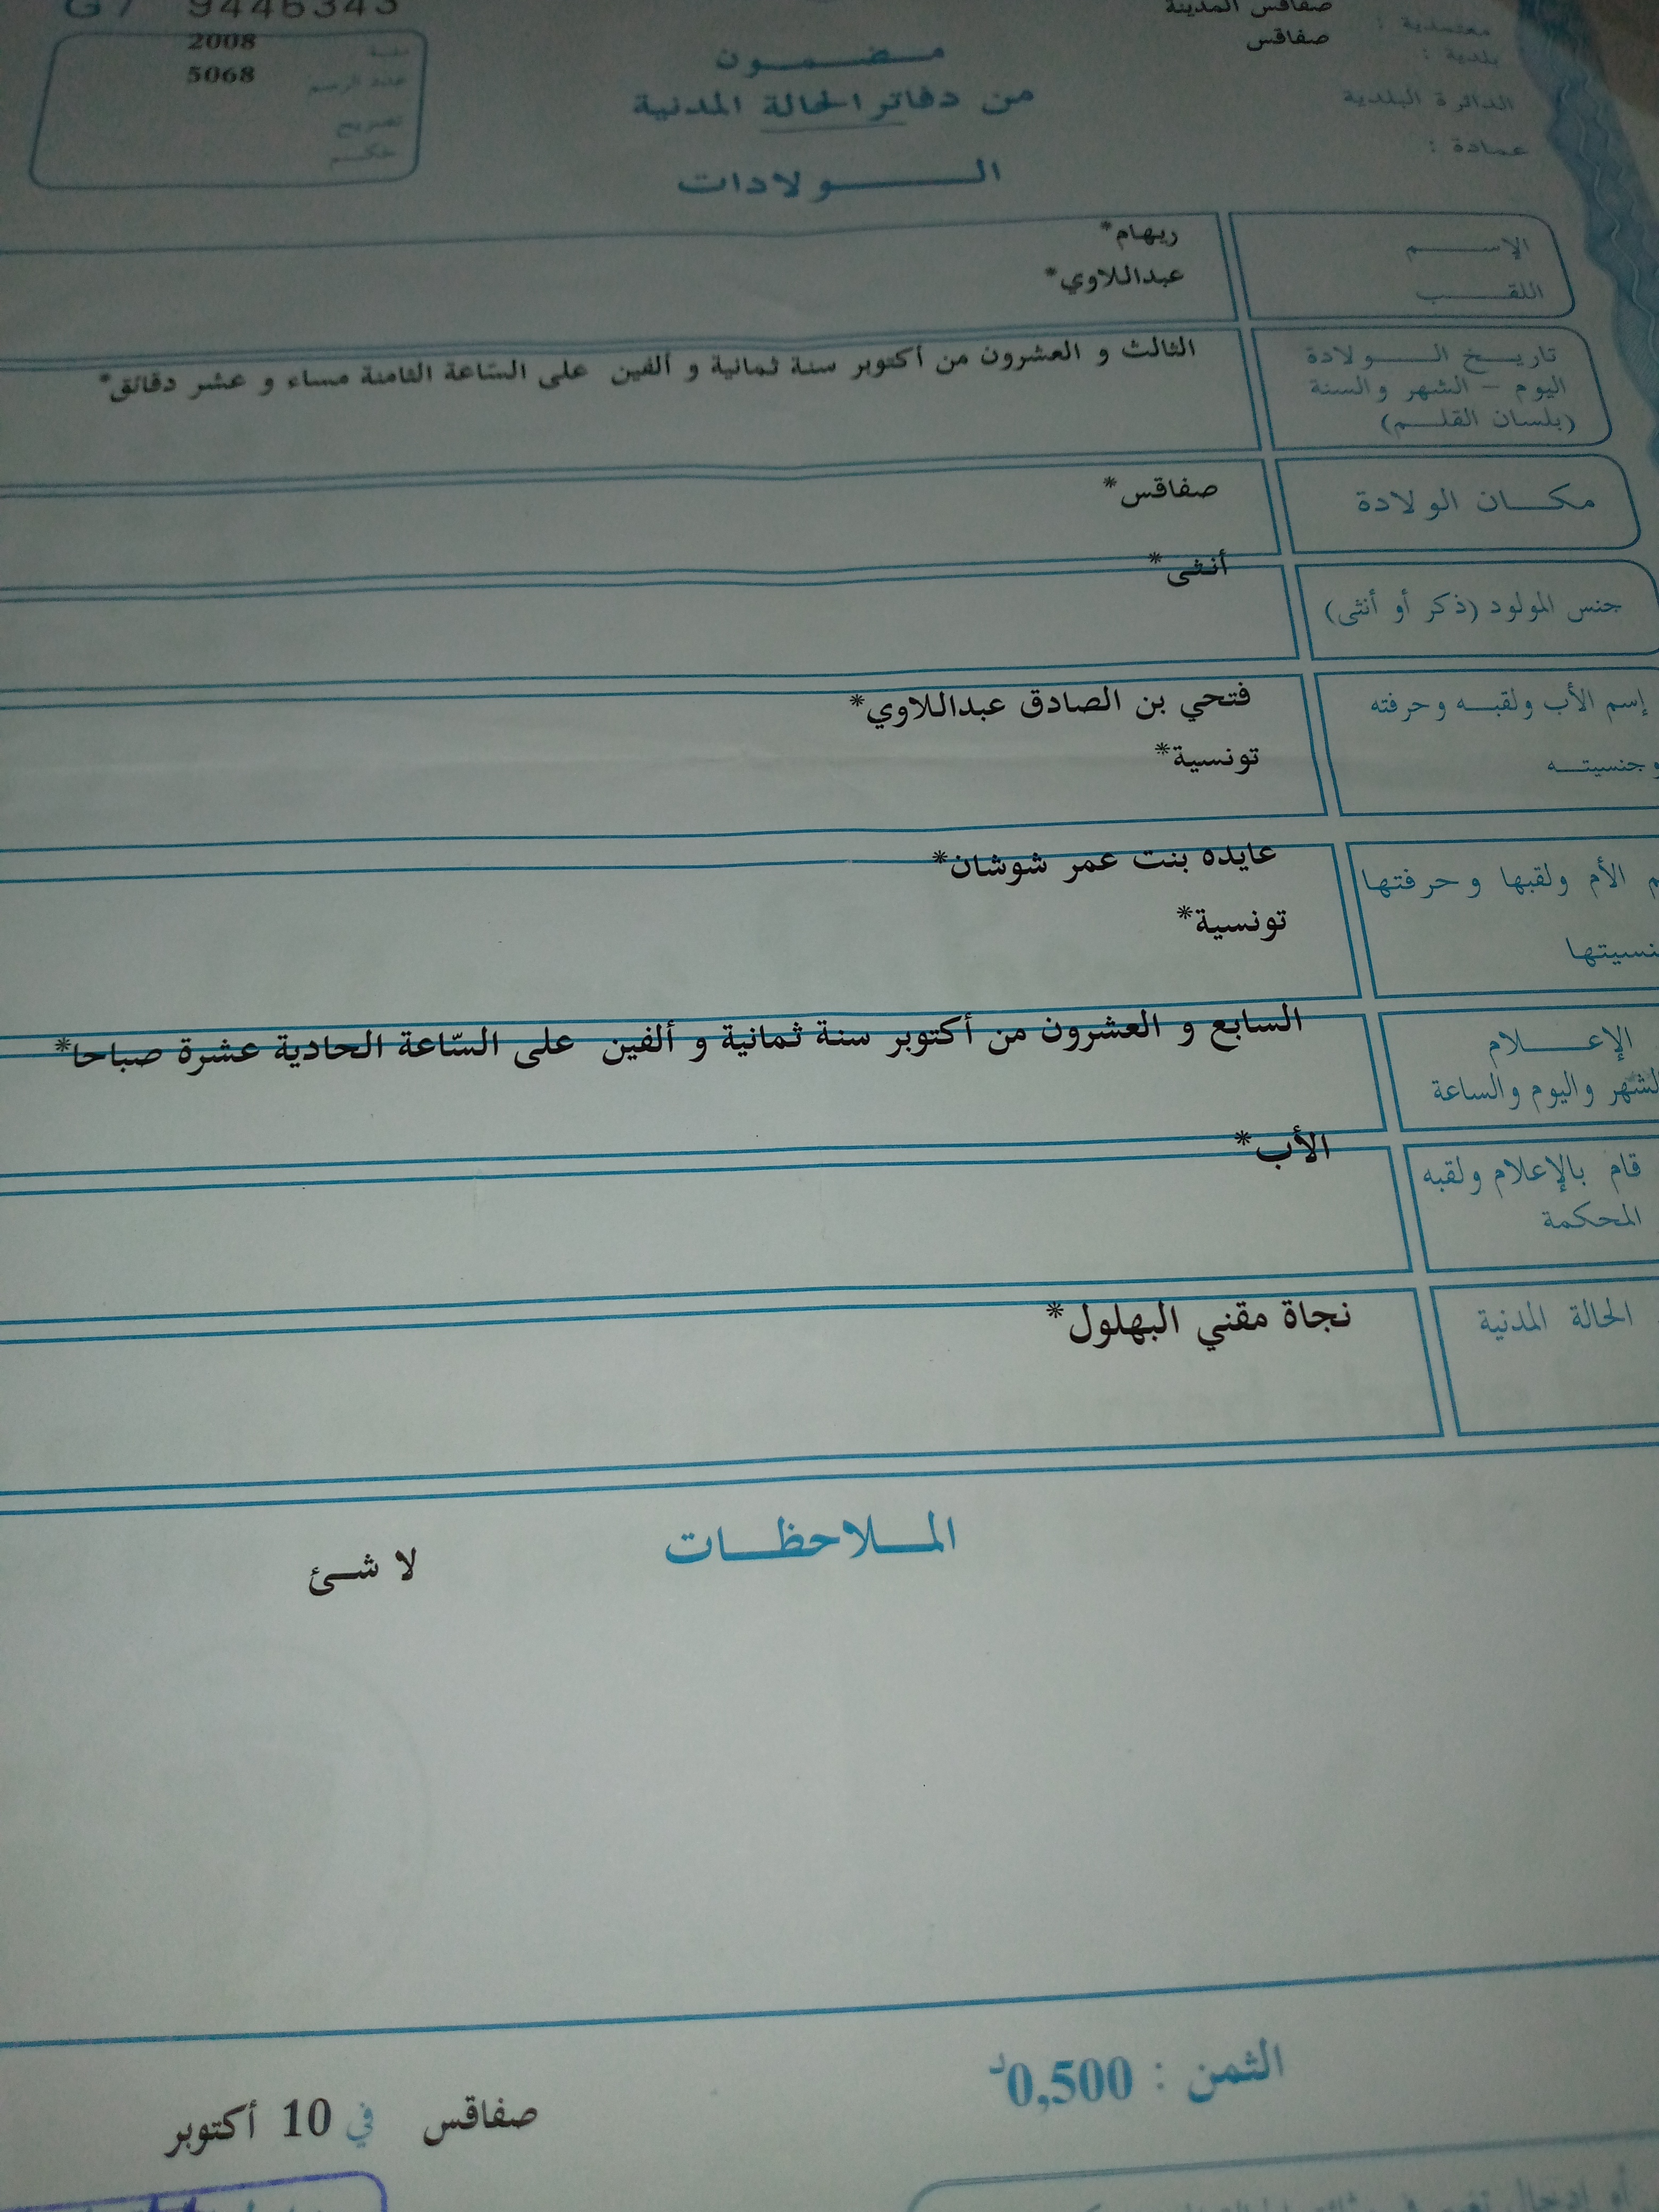 G7 9446343
صفاقس المدينة
معتمدية :
2008
سنة
صفاقس
بلدية :
5068
عدد الرسم
الدائرة البلدية
تصريح
عمادة :
حكم
مضمون
من دفاتر الحالة المدنية
الولادات
الإسم
ريهام*
اللقب
عبداللاوي*
تاريخ الولادة
اليوم – الشهر والسنة
(بلسان القلم)
الثالث و العشرون من أكتوبر سنة ثمانية و ألفين على السّاعة الثامنة مساء و عشر دقائق*
مكان الولادة
صفاقس*
جنس المولود (ذكر أو أنثى)
أنثى*
إسم الأب ولقبه وحرفته
فتحي بن الصادق عبداللاوي*
وجنسيته
تونسية*
م الأم ولقبها وحرفتها
عايده بنت عمر شوشان*
نسيتها
تونسية*
الإعلام
لشهر واليوم والساعة
السابع و العشرون من أكتوبر سنة ثمانية و ألفين على السّاعة الحادية عشرة صباحا*
قام بالإعلام ولقبه
المحكمة
الأب*
الحالة المدنية
نجاة مقني البهلول*
الملاحظات
لا شئ
الثمن : 0,500د
صفاقس في 10 أكتوبر